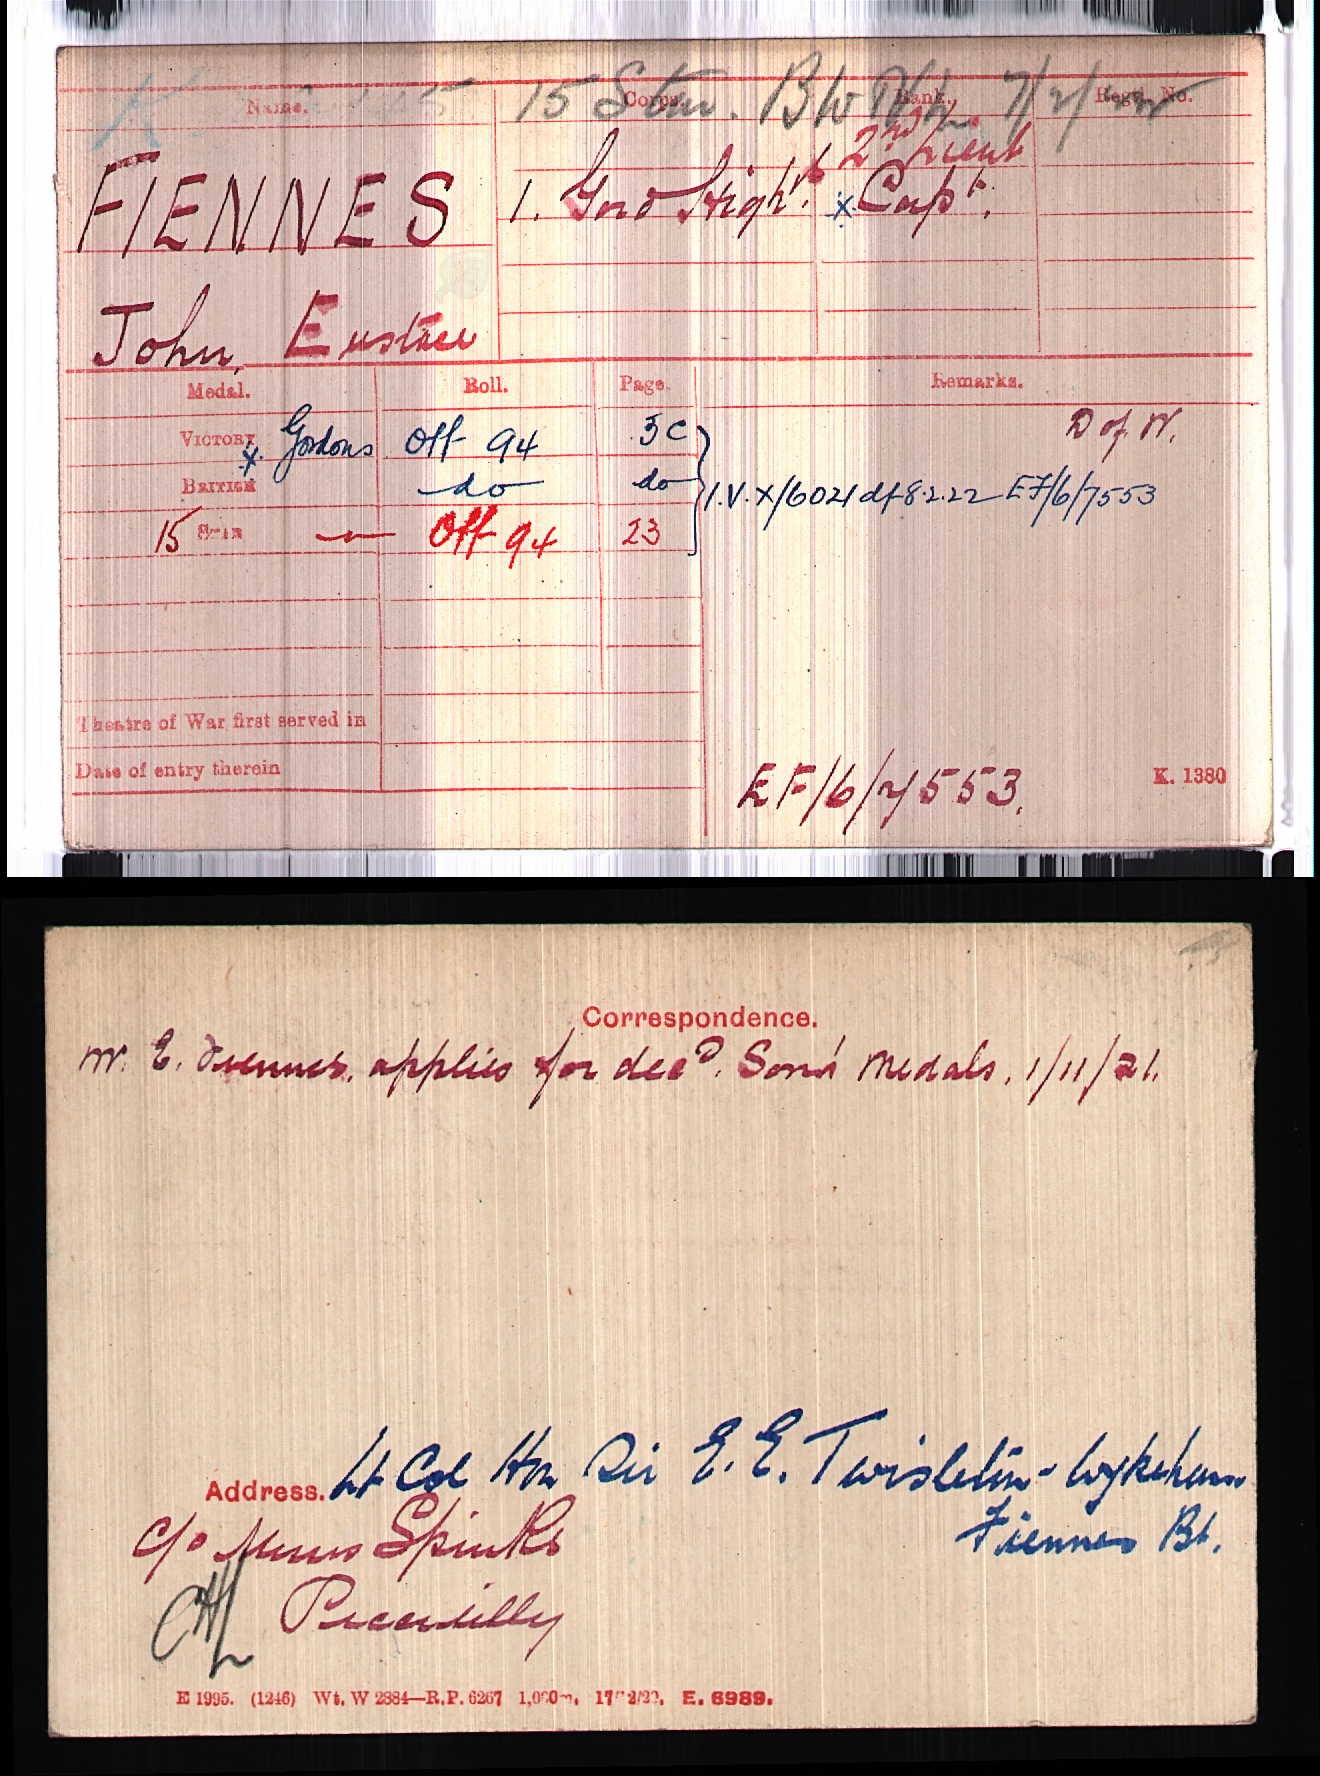 15 Star. BW
Name. Corps. Rank. Regtl. No.
2nd Lieut
FIENNES 1. Gord Highrs. x Capt.
John, Eustace
Medal. Roll. Page. Remarks.
VICTORY x. Gordons Off 94 3C D of W.
BRITISH do do I.V. X/6021 df 8.2.22 EF/6/7553
15 STAR Off 94 23
Theatre of War first served in
Date of entry therein
EF/6/7553. K. 1380
Correspondence.
E. Fiennes. applies for decd. Son's Medals. 1/11/21.
Address. Lt Col Hon Sir E. E. Twisleton-Wykeham
Fiennes Bt.
c/o Messrs Spinks
Piccadilly
E 1995. (1246) Wt. W 2884—R.P. 6267 E. 6989.